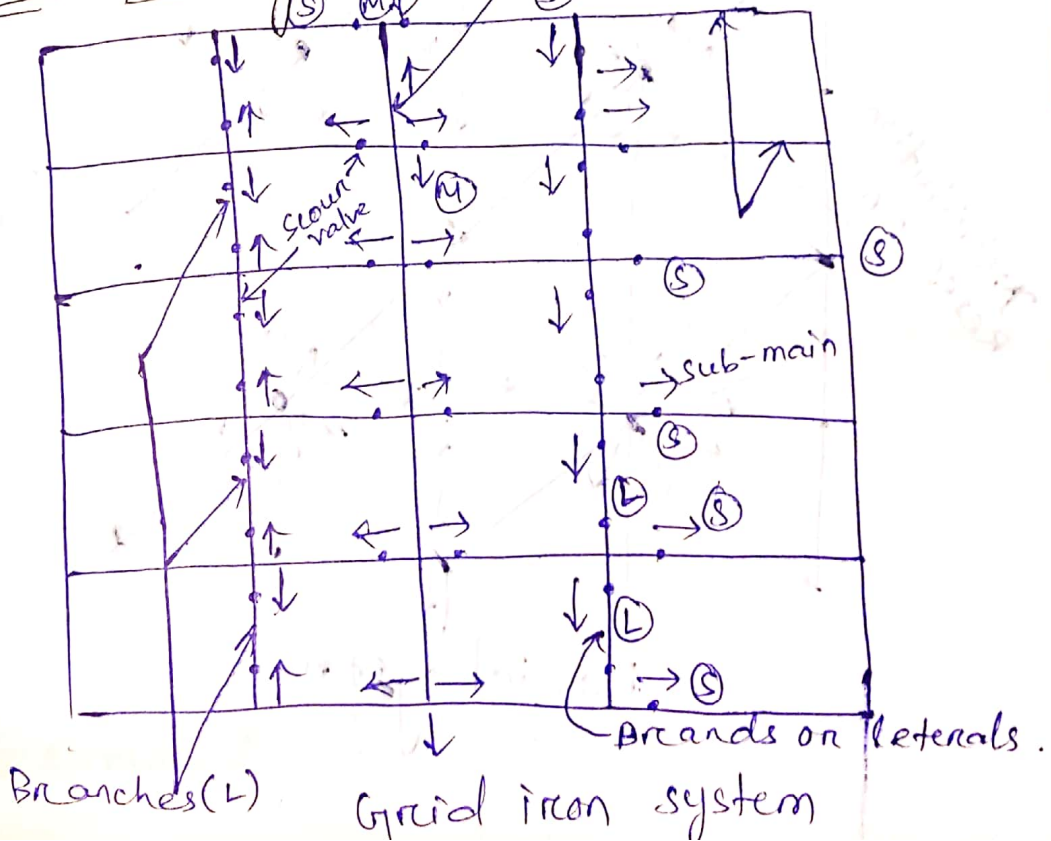 (S)
(M)
(M)
Scour
valve
(S)
(S)
→ Sub-main
(S)
(L)
(S)
(L)
(S)
Breands on leterals.
Branches(L)
Grid iron system